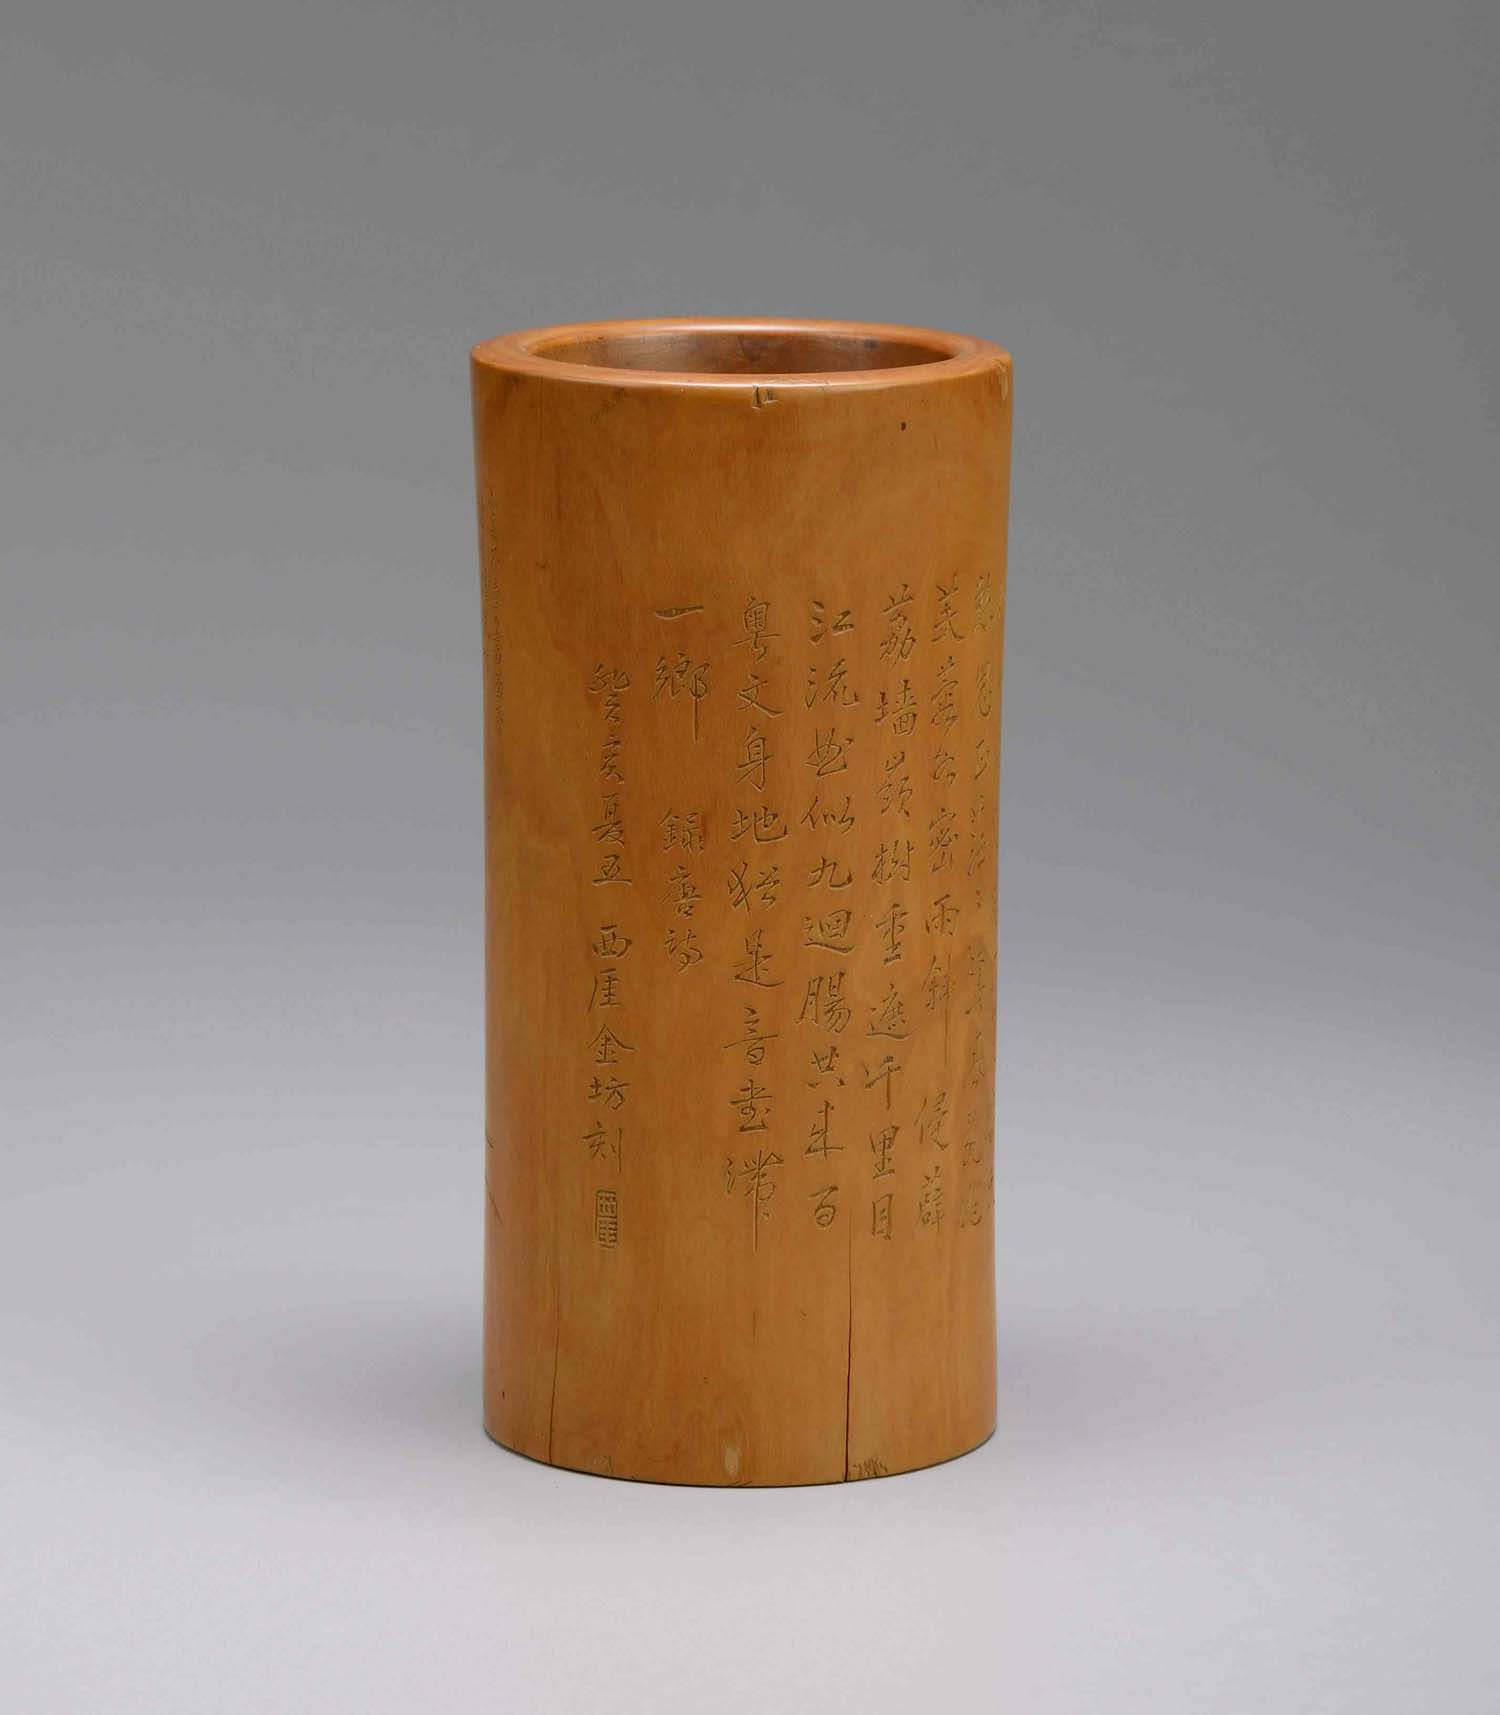 愁思正茫〻驚風亂颭
芙蓉水密雨斜侵薜
荔墻嶺樹重遮千里目
江流曲似九迴腸共來百
粵文身地猶是音書滯
一鄉 錄唐詩
癸亥夏五 西厓金坊刻
西厓